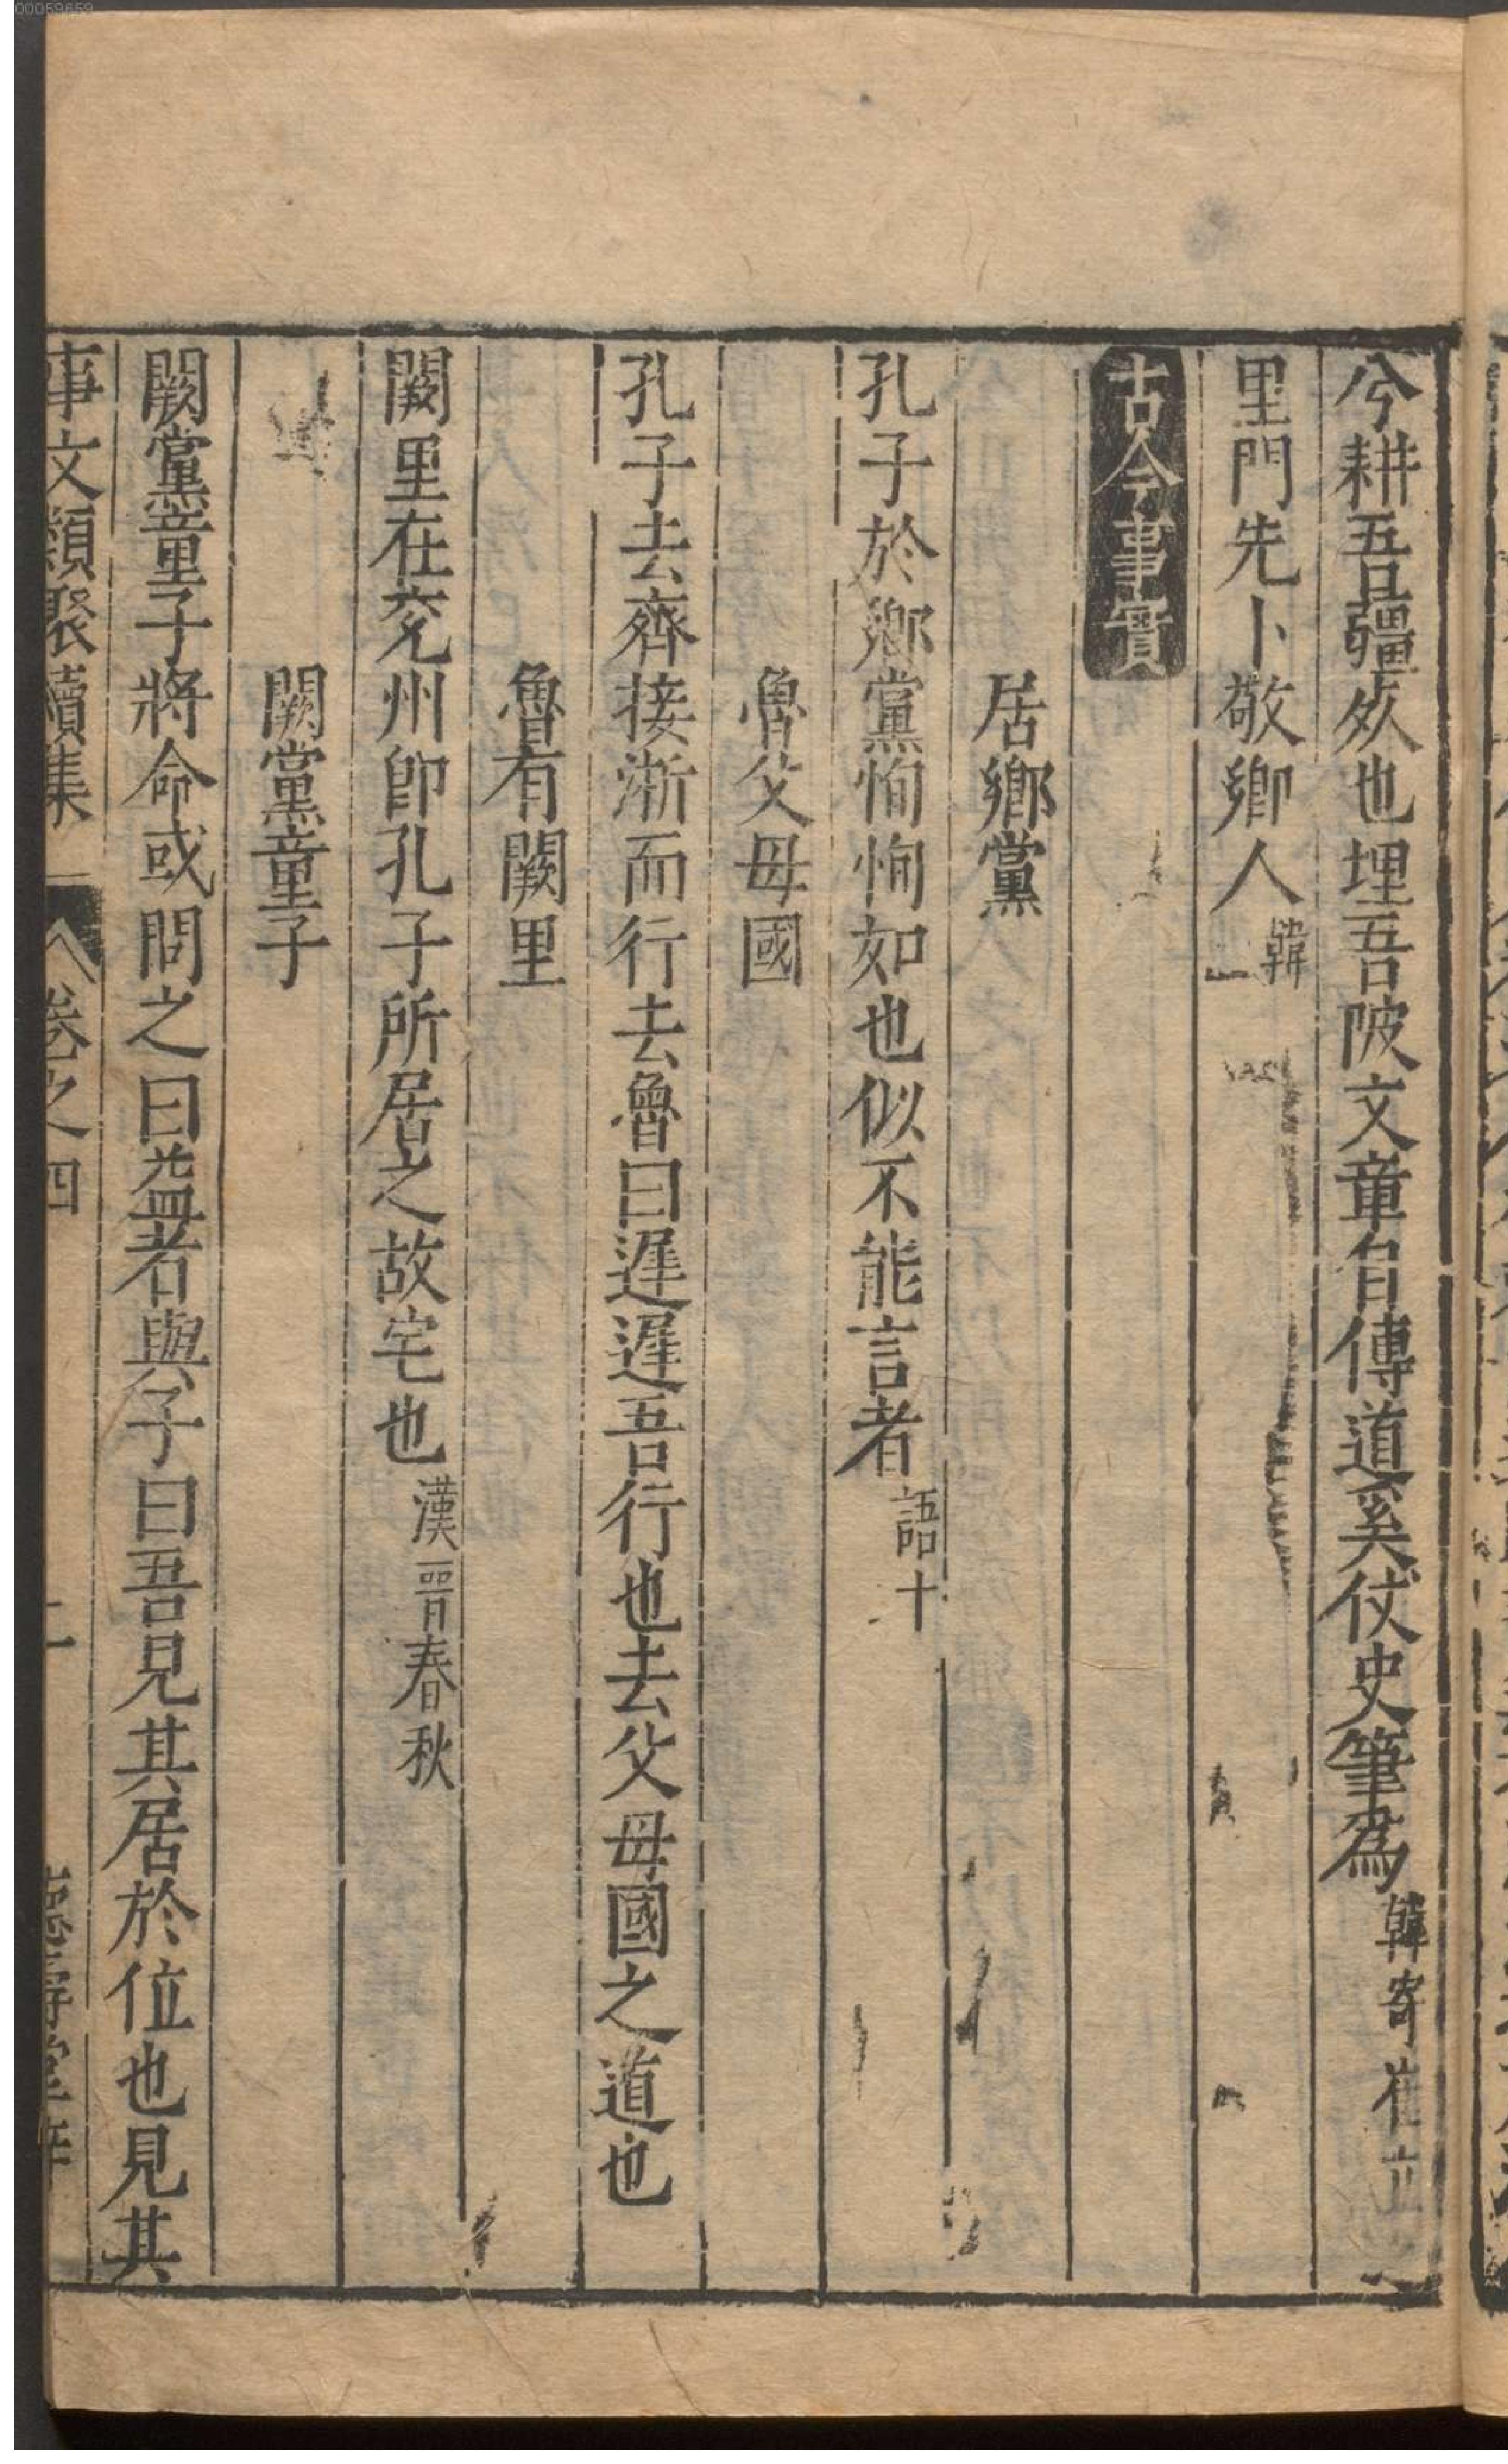 兮耕吾疆㢤也埋吾陂文章自傳道奚仗史筆爲韓寄崔立之
里門先卜敬鄉人韓
古今事實
居鄉黨
孔子於鄉黨恂恂如也似不能言者語十
魯父母國
孔子去齊接淅而行去魯曰遲遲吾行也去父母國之道也
魯有闕里
闕里在兖州卽孔子所居之故宅也漢晋春秋
闕黨童子
闕黨童子將命或問之曰益者與子曰吾見其居於位也見其
事文類聚續集 卷之四 二 德壽堂梓
00059659